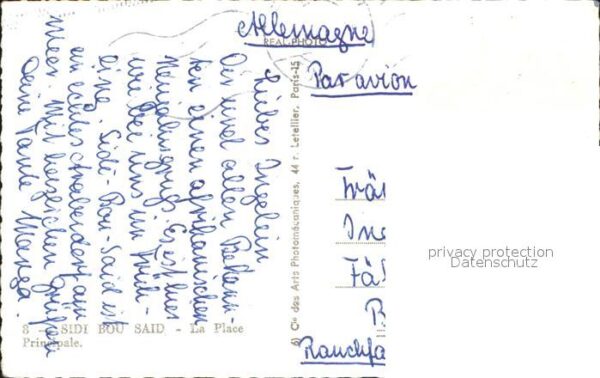 Allemagne
REAL-PHOTO
Par avion
Liebes Ingelein
Dir und allen Bekann-
ten einen afrikanischen
Urlaubsgruß. Es ist hier
wie bei uns im Früh-
ling. Sidi-Bou-Said ist
ein echtes Araberdorf am
Meer. Mit herzlichen Grüßen
Deine Tante
Cie des Arts Photomécaniques, 44 r. Letellier, Paris-15
Frä
Ing
Fä
Rauchfa
privacy protection
Datenschutz
8 - SIDI BOU SAID - La Place
Principale.